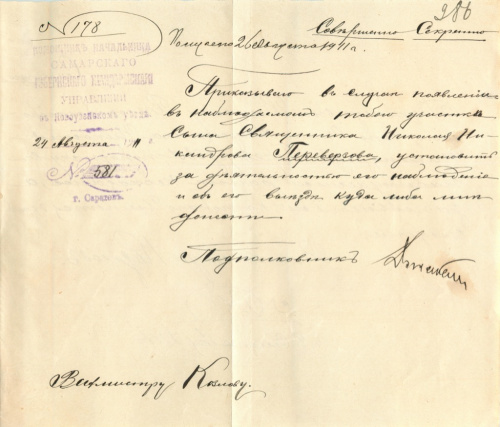 № 178
286
Совершенно Секретно
Получено 26 Августа 1911 г.
ПОМОЩНИКЪ НАЧАЛЬНИКА
САМАРСКАГО
ГУБЕРНСКАГО ЖАНДАРМСКАГО
УПРАВЛЕНІЯ
въ Новоузенскомъ уѣздѣ.
24 Августа 1911 г.
№ 581
г. Саратовъ.
Приказываю въ случаѣ появленія
въ наблюдаемомъ тобою участкѣ
Сына Священника Николая Ни-
кандрова Переверзова, установить
за дѣятельностью его наблюденіе
и объ его выѣздѣ куда либо мнѣ
донести.
Подполковникъ
Вахмистру Козлову.